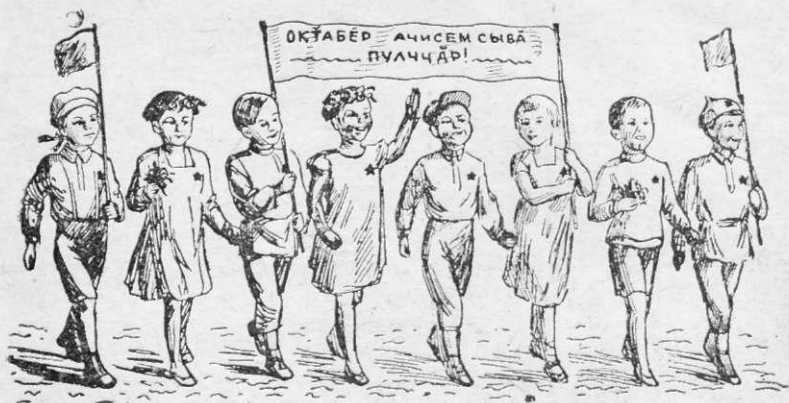 ОКТ̌АБӖР АЧИСЕМ СЫВӐ
ПУЛЧЧӐР!